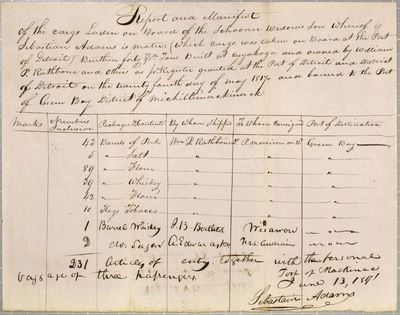 Report and Manifest
Of the cargo Laden on Board of the Schooner Widows Son Whereof is
Sebastian Adams is master, (which cargo was taken on Board at the Port
of Detroit) Burthen forty Tons Built at Cuyahoga and owned by William
P Rathbone and others as pr Register granted at the Port of Detroit and District
of Detroit on the twenty fourth day of may and bound to the Port
of Green Bay District of Michillimackinack
Marks Numbers Inclusive Packages & Contents By Whom Shipped To Whom Consigned Port of Destination
43 Barrels of Pork Wm P. Rathbone P. morrison Green Bay
5 " Salt " " "
89 " Flour " " "
39 " Whiskey " " "
42 " Flour " " "
10 Kegs Tobacco " " "
1 Barrel Whiskey J B. "
2 do. Sugar "
231 Articles of entry, together with the personal
baggage of three Passengers
Port of Mackinac
June 13, 
Sebastain Adams